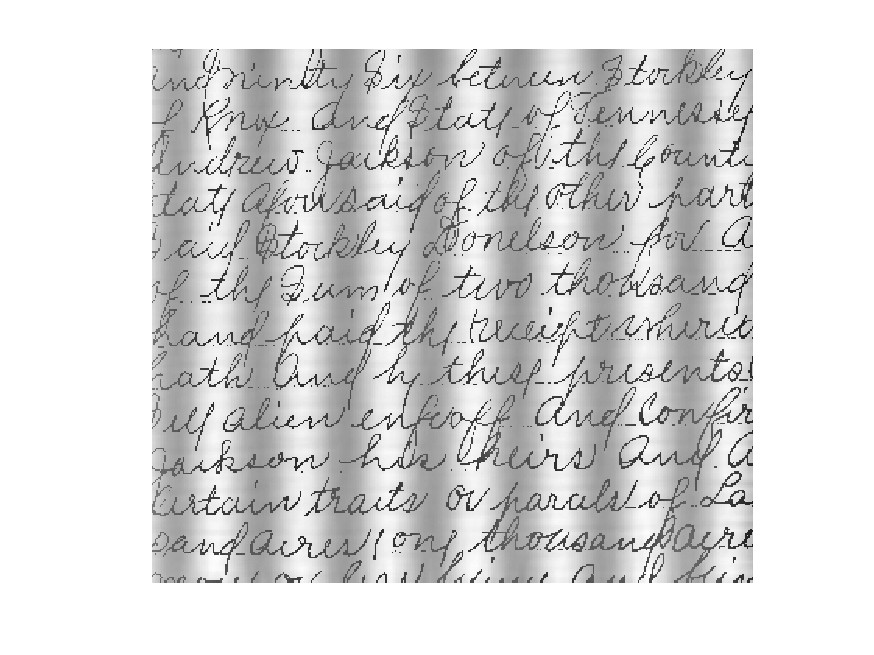 and ninety Six between Stockley
of Knox And State of Tennessee
Andrew Jackson of the County
State Aforesaid of the other part
Said Stockley Donelson for
of the Sum of two thousand
hand paid the receipt whereo
hath And by these presents
Sell alien enfeoff And Confir
Jackson his heirs And
Certain tracts or parcals of La
sand acres one thousand acre